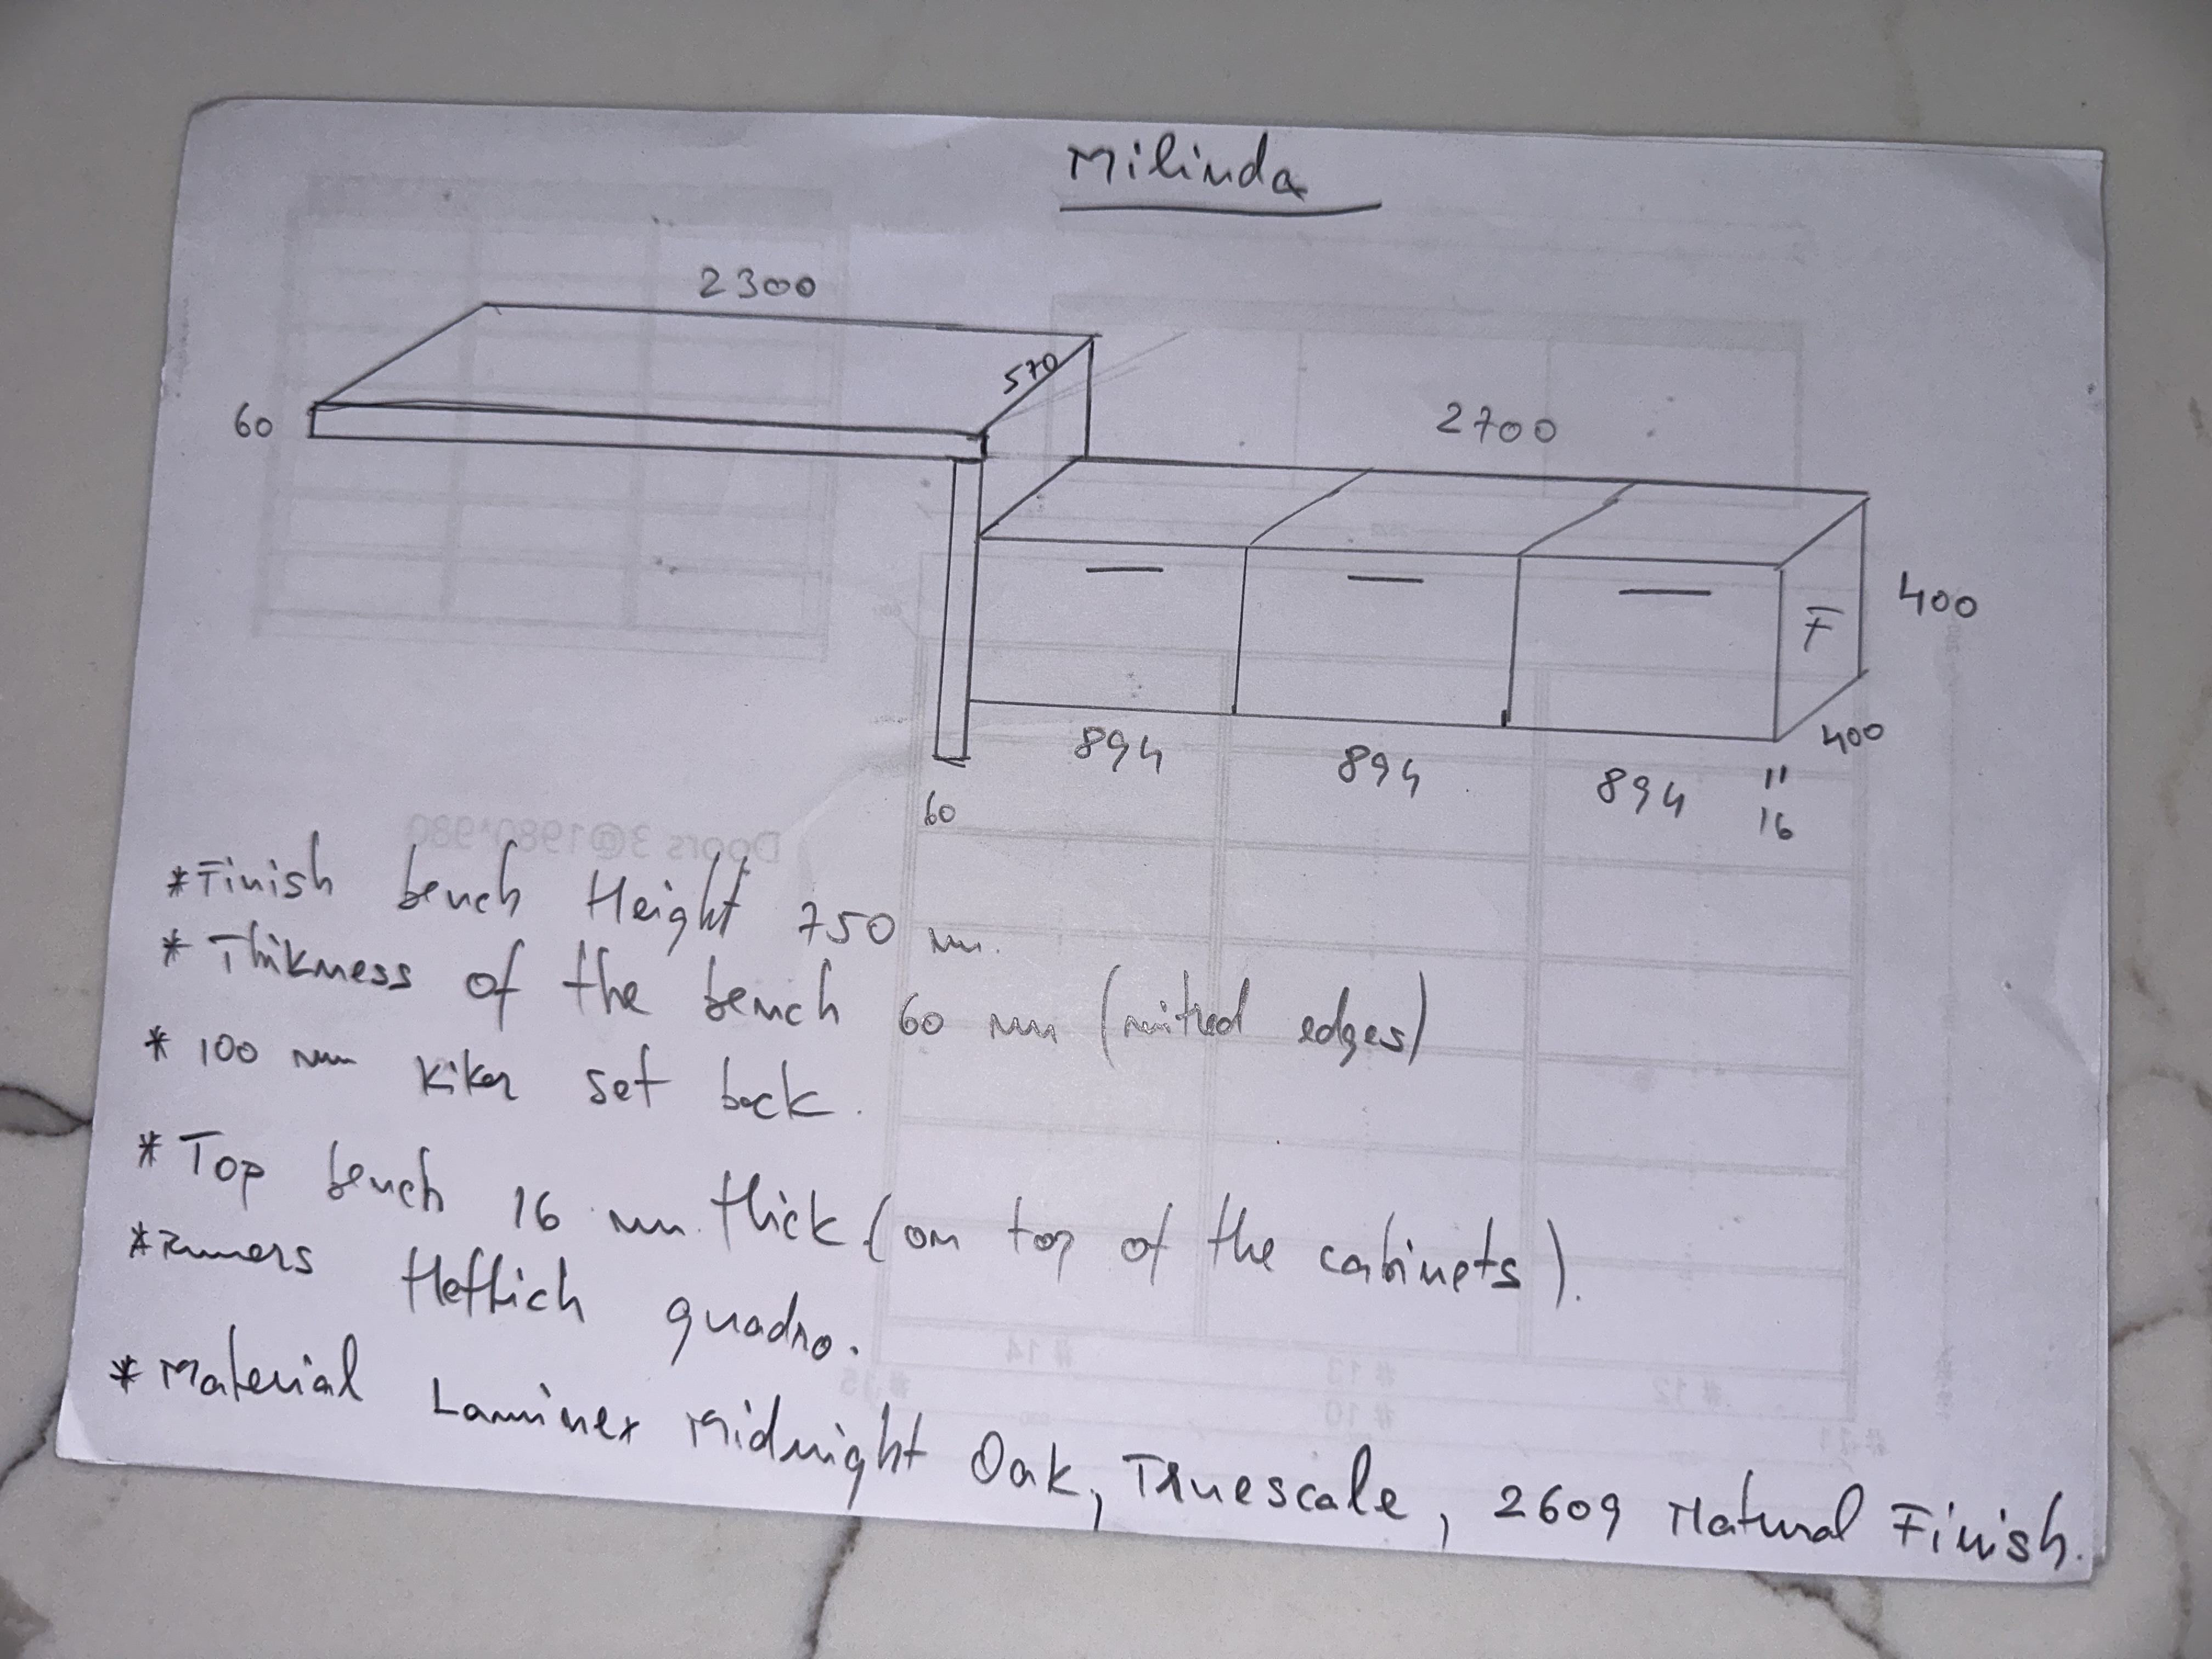 Milinda
2300
570
60
2700
400
F
400
894
894
894
"
16
60
Doors 3@1980*980
*Finish bench Height 750 mm.
* Thikness of the bench 60 mm (mitred edges)
* 100 mm kiker set back.
* Top bench 16 mm thick (on top of the cabinets).
*Runners Hettich quadro.
* Material Laminex Midnight Oak, Truescale, 2609 Natural Finish.
# 14
# 13
# 12
# 15
# 10
# 11